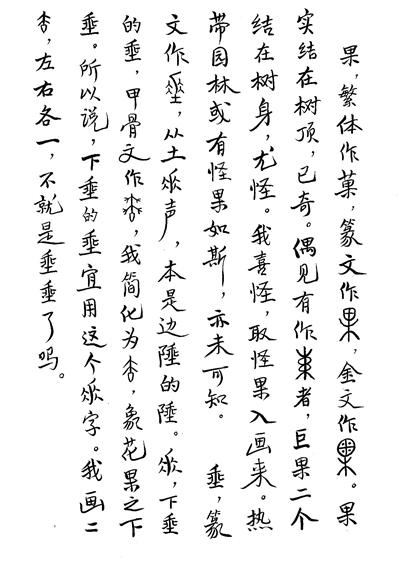 果，繁体作菓，篆文作果，金文作。果
实结在树顶，已奇。偶见有作者，巨果二个
结在树身，尤怪。我喜怪，取怪果入画来。热
带园林或有怪果如斯，亦未可知。 垂，篆
文作，从土声，本是边陲的陲。，下垂
的垂，甲骨文作，我简化为，象花果之下
垂。所以说，下垂的垂宜用这个字。我画二
，左右各一，不就是垂垂了吗。